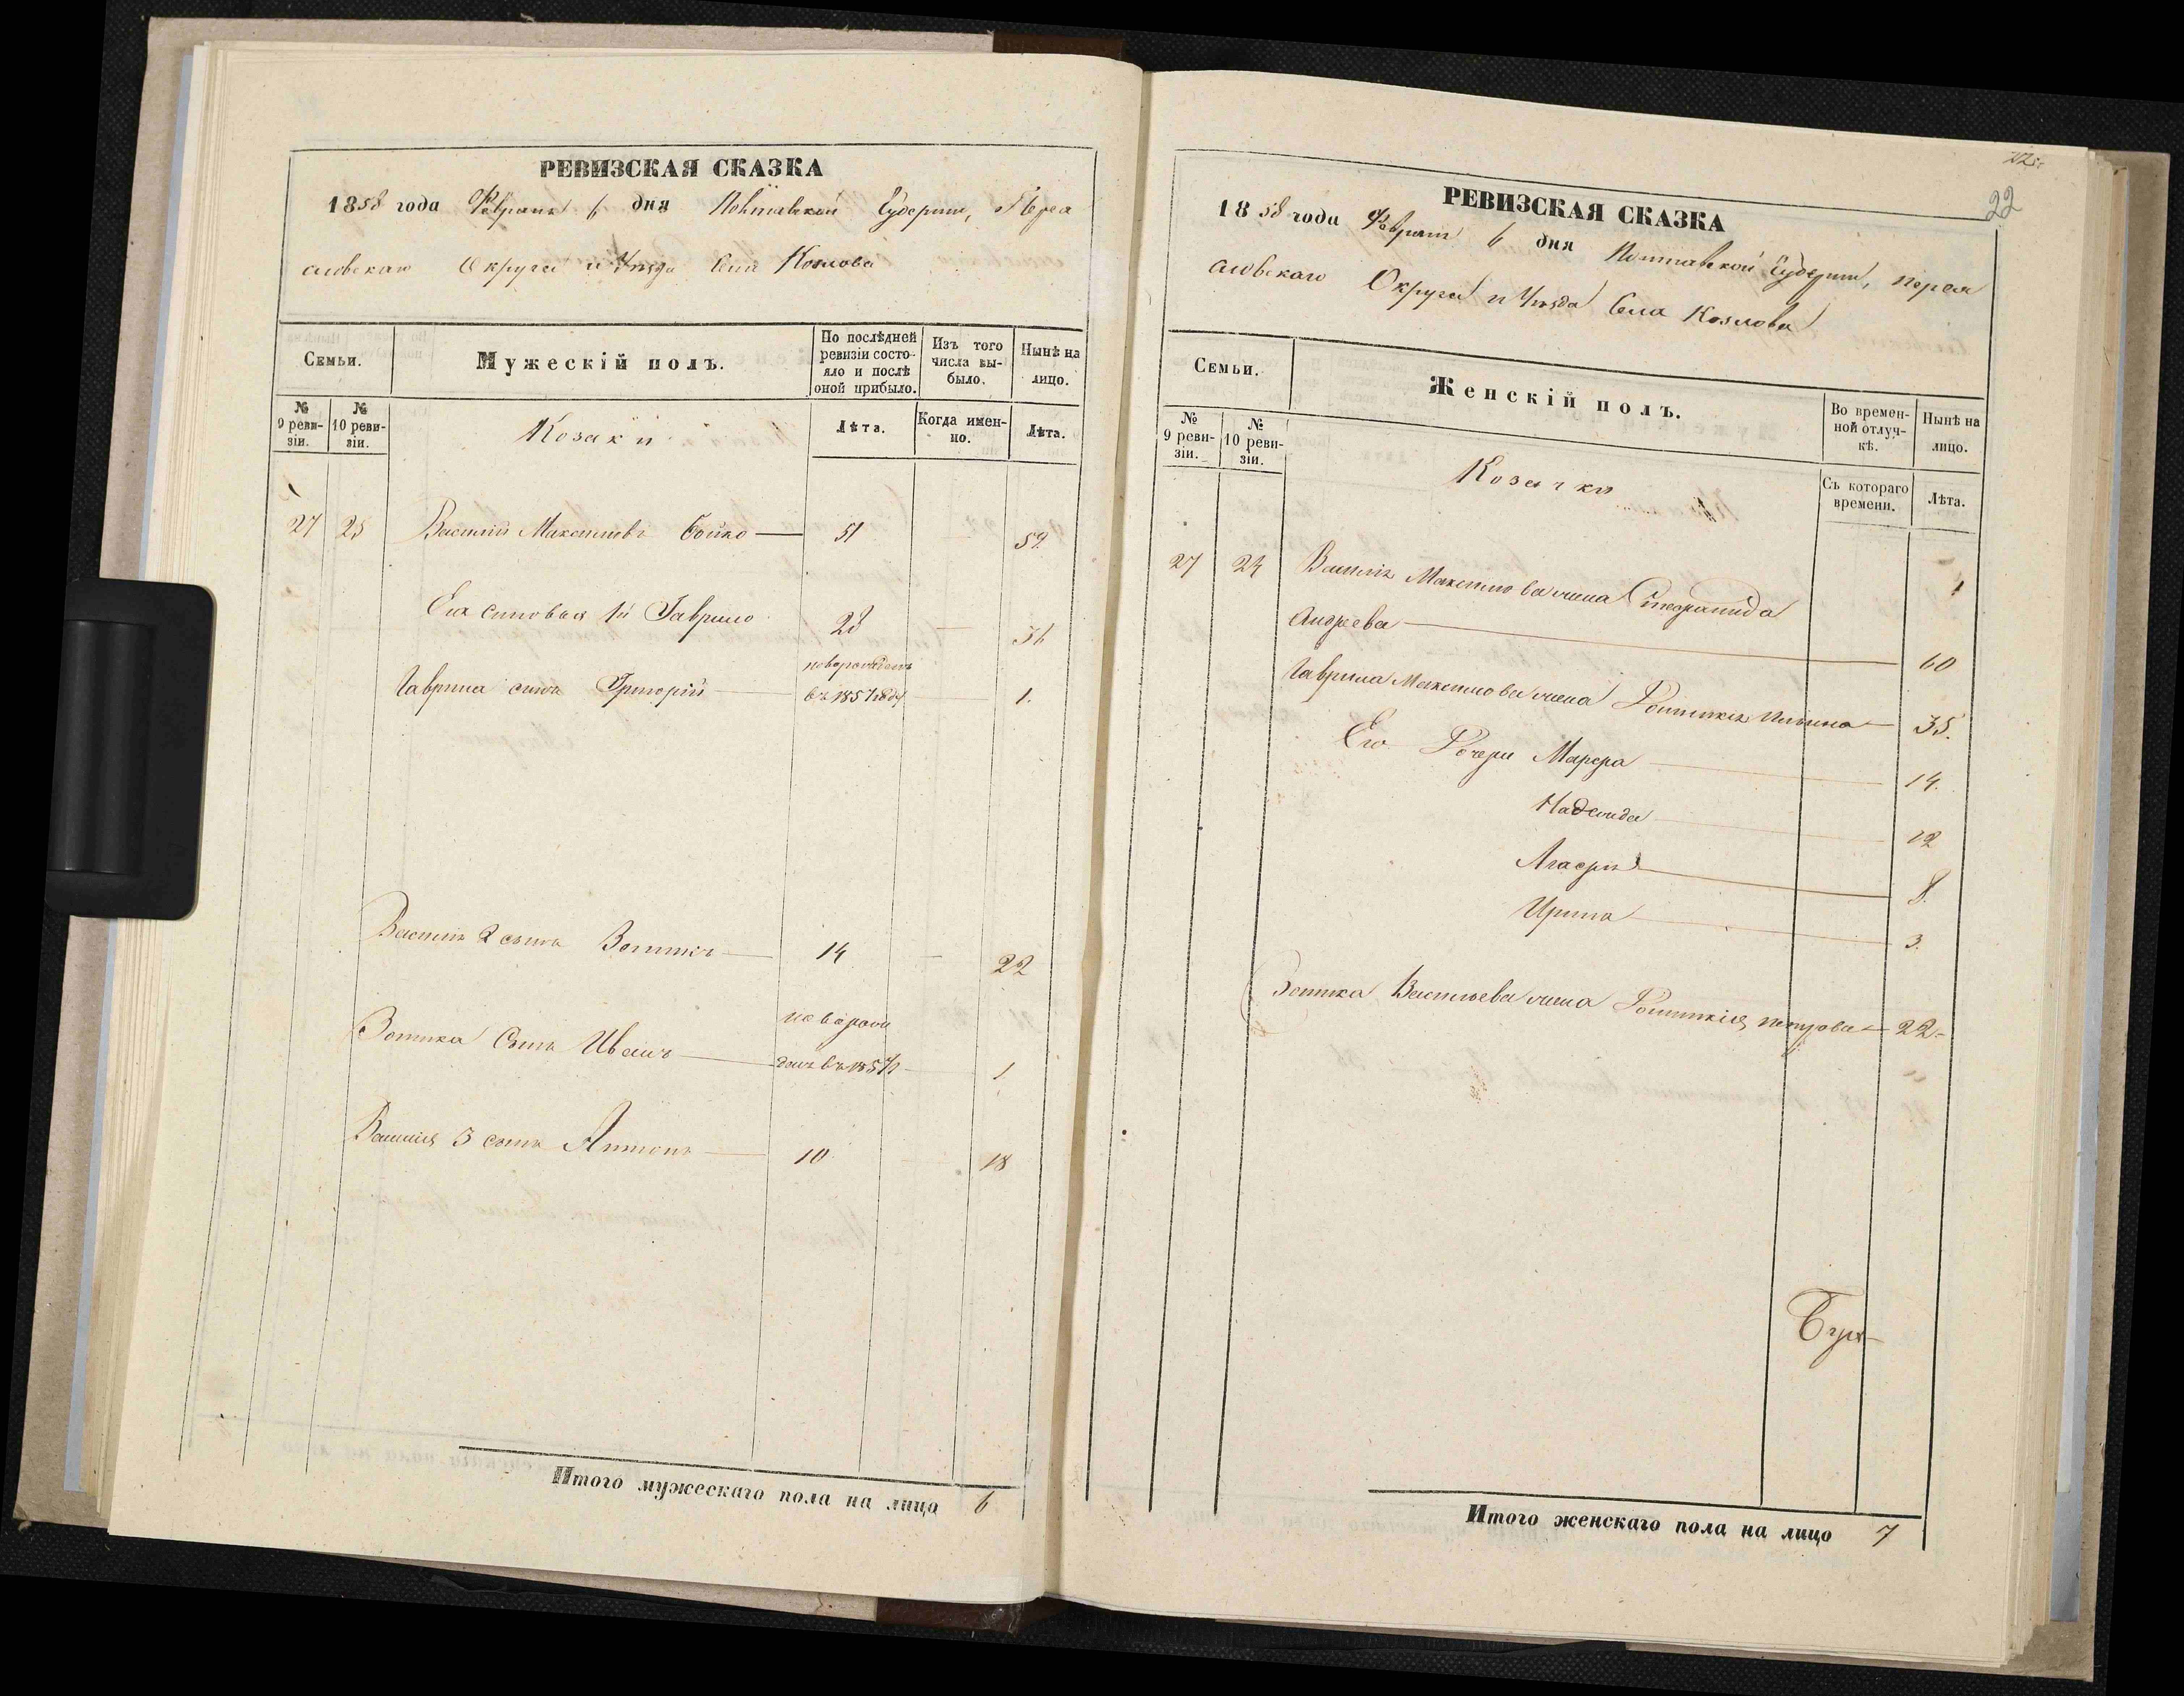 РЕВИЗСКАЯ СКАЗКА
1858 года Февраля 6 дня Полтавской Губерніи, Переа
славскаго Округа и Уѣзда Села Козлова
Семьи.
Мужескій полъ.
По послѣдней ревизіи состояло и послѣ оной прибыло.
Изъ того числа выбыло.
Нынѣ на лицо.
№ 9 ревизіи.
№ 10 ревизіи.
Козаки
Лѣта.
Когда именно.
Лѣта.
27 25 Василій Максимовъ Бойко 51 59.
Его сыновья 1й Гаврило 28 36
новорожденъ
Гаврила сынъ Григорій въ 1857 году 1.
Василія 2 сынъ Зотикъ 14 22
новорож
Зотика Сынъ Иванъ денъ въ 1857 1
Василія 3 сынъ Антонъ 10 18
Итого мужескаго пола на лицо 6
22
РЕВИЗСКАЯ СКАЗКА
1858 года Февраля 6 дня Полтавской Губерніи, Переа
славскаго Округа и Уѣзда Села Козлова
Семьи.
Женскій полъ.
Во временной отлучкѣ.
Нынѣ на лицо.
№ 9 ревизіи.
№ 10 ревизіи.
Козачки
Съ котораго времени.
Лѣта.
27 25 Василія Максимова жена
Андреева 60
Гаврила Максимова жена 35.
Его Дочери Марфа 14.
Надежда 12
Агафія 8.
Ирина 3.
Зотика Васильева жена Петрова 22
Итого женскаго пола на лицо 7